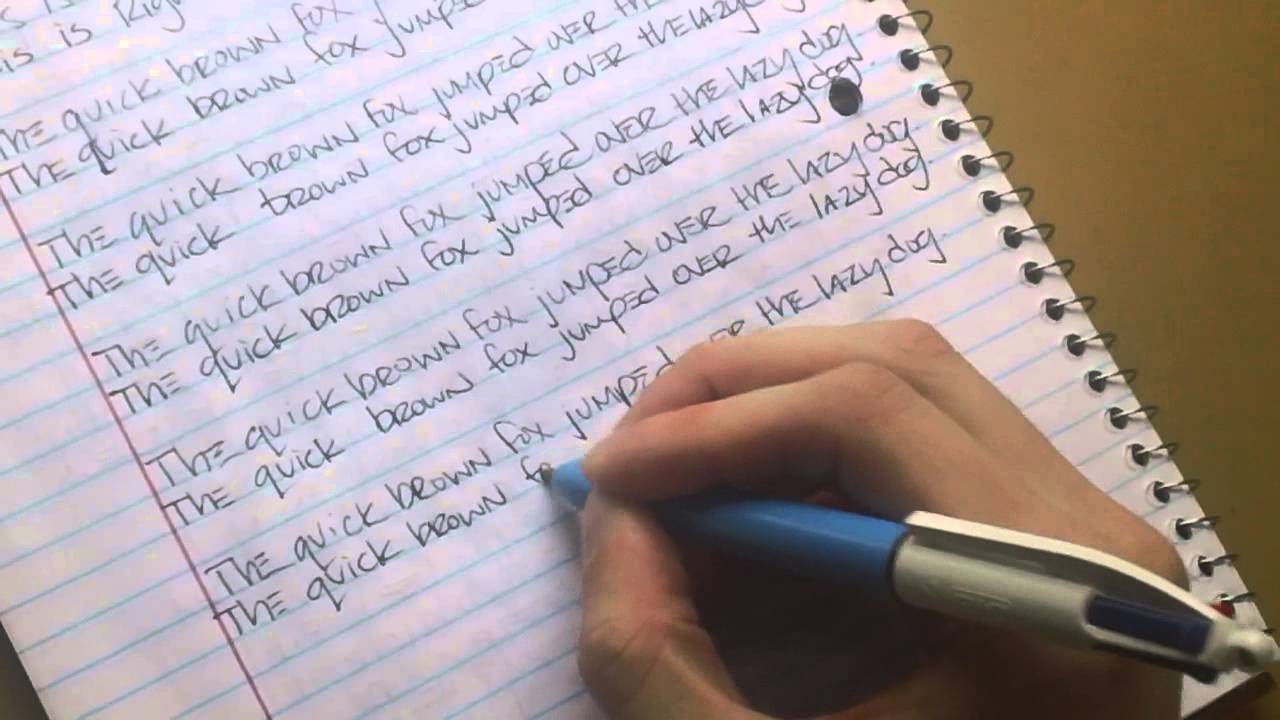 is is Rig
The quick brown fox
The quick brown fox jumped
The quick brown fox jumped over the
The quick brown fox jumped over the lazy
The quick brown fox jumped over the lazy dog
The quick brown fox jumped over the lazy dog.
The quick brown fox jumped over the lazy dog
The quick brown fox jumped over the lazy dog.
The quick brown fox jumped er the lazy dog.
The quick brown fo